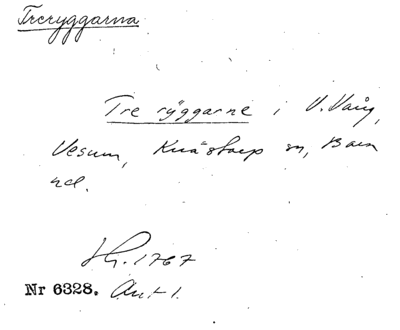 Treryggarna
Tre ryggarne i V. Vång,
Vesum, Knästorp sn, Bara
hd.
Hg. 1767
Nr 6328. Akt 1.